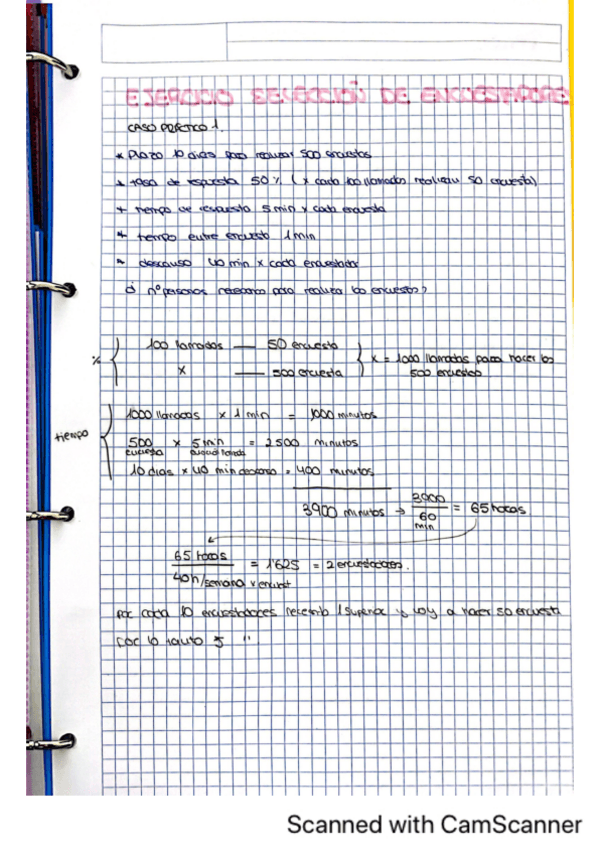 EJERCICIO SELECCIÓN DE ENCUESTADORES
CASO PRÁCTICO 1.
* Plazo 10 dias para realizar 500 encuestas
* tasa de respuesta 50% ( x cada 100 llamadas realizau 50 encuesta)
* tiempo de respuesta 5 min x cada encuesta
* tiempo entre encuesta 1 min
* descauso 40 min x cada encuestador
¿ nº personas necesarias para realizar las encuestas?
100 llamadas — 50 encuesta
% x — 500 encuesta
x = 1000 llamadas para hacer las
500 encuestas
tiempo
1000 llamadas x 1 min = 1000 minutos
500 encuesta x 5 min = 2500 minutos
10 dias x 40 min descanso = 400 minutos
3900 minutos → 3900 / 60 min = 65 horas
65 horas / 40h/semana x encuest = 1'625 = 2 encuestadores.
por cada 10 encuestadores necesito 1 supervisor y voy a hacer 50 encuesta
por lo tauto 5 "
Scanned with CamScanner